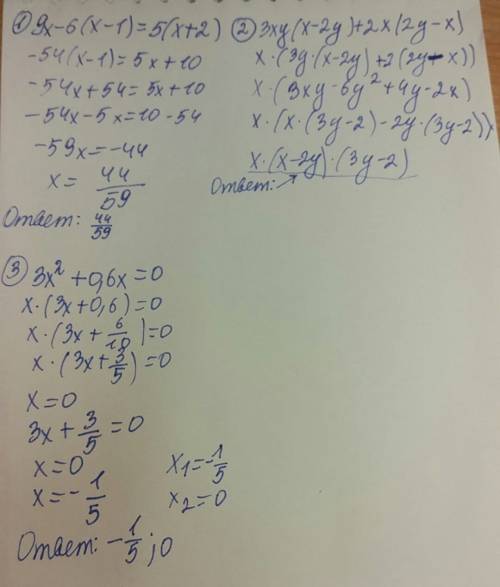 ① 9x-6(x-1)=5(x+2)
-54(x-1)=5x+10
-54x+54=5x+10
-54x-5x=10-54
-59x=-44
x=44/59
Ответ: 44/59
② 3xy(x-2y)+2x(2y-x)
x·(3y·(x-2y)+2(2y-x))
x·(3xy-6y²+4y-2x)
x·(x·(3y-2)-2y·(3y-2))
x·(x-2y)·(3y-2)
Ответ:
③ 3x²+0,6x=0
x·(3x+0,6)=0
x·(3x+6/10)=0
x·(3x+3/5)=0
x=0
3x+3/5=0
x=0
x=-1/5
x₁=-1/5
x₂=0
Ответ: -1/5; 0